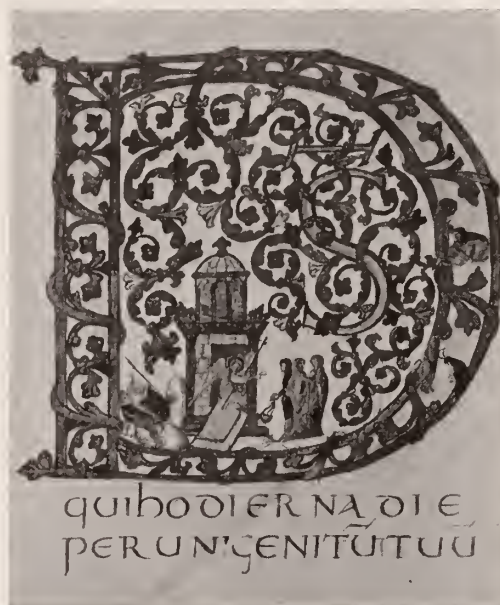 DS̄
quihodierna die
perun'genitū tuū